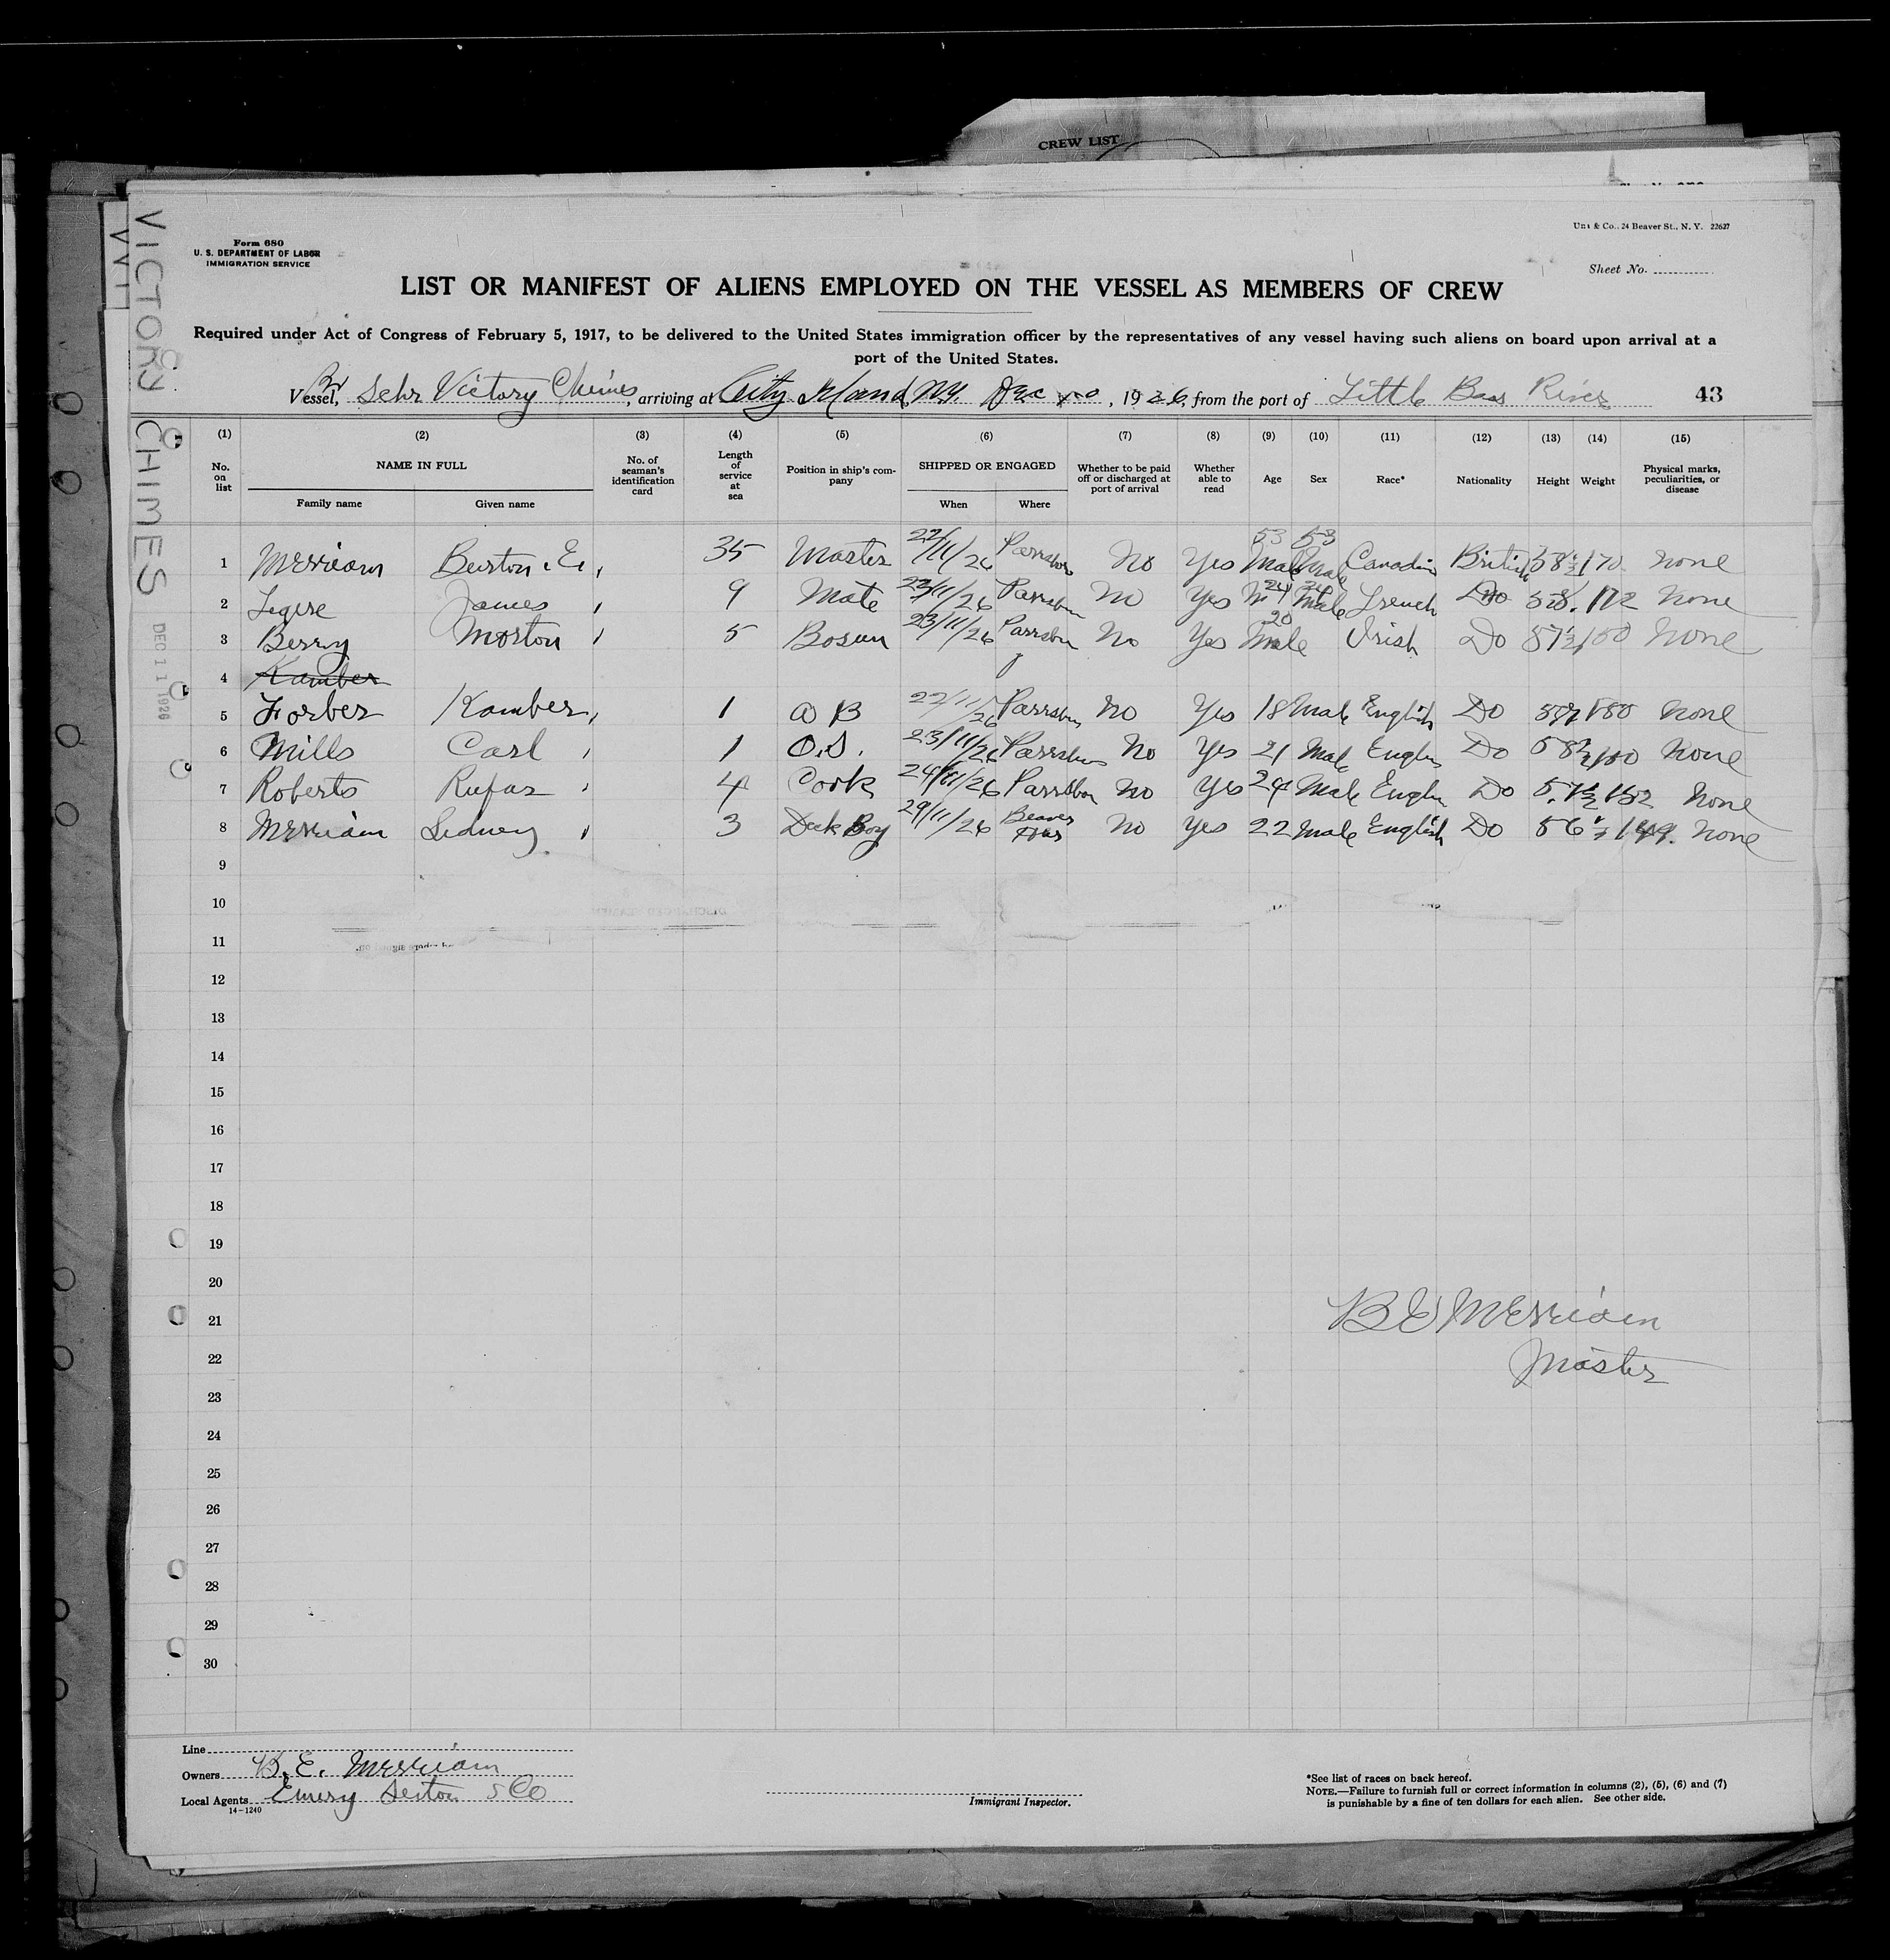 CREW LIST
VICTORY CHIMES
DEC 11 1926
Form 680
U. S. DEPARTMENT OF LABOR
IMMIGRATION SERVICE
& Co., 24 Beaver St., N. Y. 22627
Sheet No.
LIST OR MANIFEST OF ALIENS EMPLOYED ON THE VESSEL AS MEMBERS OF CREW
Required under Act of Congress of February 5, 1917, to be delivered to the United States immigration officer by the representatives of any vessel having such aliens on board upon arrival at a
port of the United States.
Vessel, Br Schr Victory Chimes, arriving at City Island, N.Y. Dec, 1926, from the port of Little Bass River 43
(1) (2) (3) (4) (5) (6) (7) (8) (9) (10) (11) (12) (13) (14) (15)
No. on list NAME IN FULL Family name Given name No. of seaman's identification card Length of service at sea Position in ship's company SHIPPED OR ENGAGED When Where Whether to be paid off or discharged at port of arrival Whether able to read Age Sex Race* Nationality Height Weight Physical marks, peculiarities, or disease
1 Merriam Burton. E. 35 Master 22/11/26 Parrsboro No Yes 53 Male Canadian British 58½ 170 none
2 Legere James 9 Mate 23/11/26 Parrsboro No Yes 24 Male French Do 172 None
3 Berry Morton 5 Bosun 23/11/26 Parrsboro No Yes 20 Male Irish Do 57½ 150 None
4 Kamber
5 Forber Kamber 1 A B 22/11/26 Parrsboro No Yes 18 Male English Do none
6 Mills Carl 1 O.S. 23/11/26 Parrsboro No Yes 21 Male English Do none
7 Roberts Rufas 4 Cook 24/11/26 Parrsboro No Yes 24 Male English Do 152 None
8 Merriam Sidney 3 Deck Boy 29/11/26 Beaver No Yes 22 Male English Do 56½ 149. None
9
10
11
12
13
14
15
16
17
18
19
20
21
22
23
24
25
26
27
28
29
30
B E Merriam
Master
Line
Owners B. E. Merriam
Local Agents Emery & Co
14—1240
Immigrant Inspector.
*See list of races on back hereof.
NOTE.—Failure to furnish full or correct information in columns (2), (5), (6) and (7)
is punishable by a fine of ten dollars for each alien. See other side.